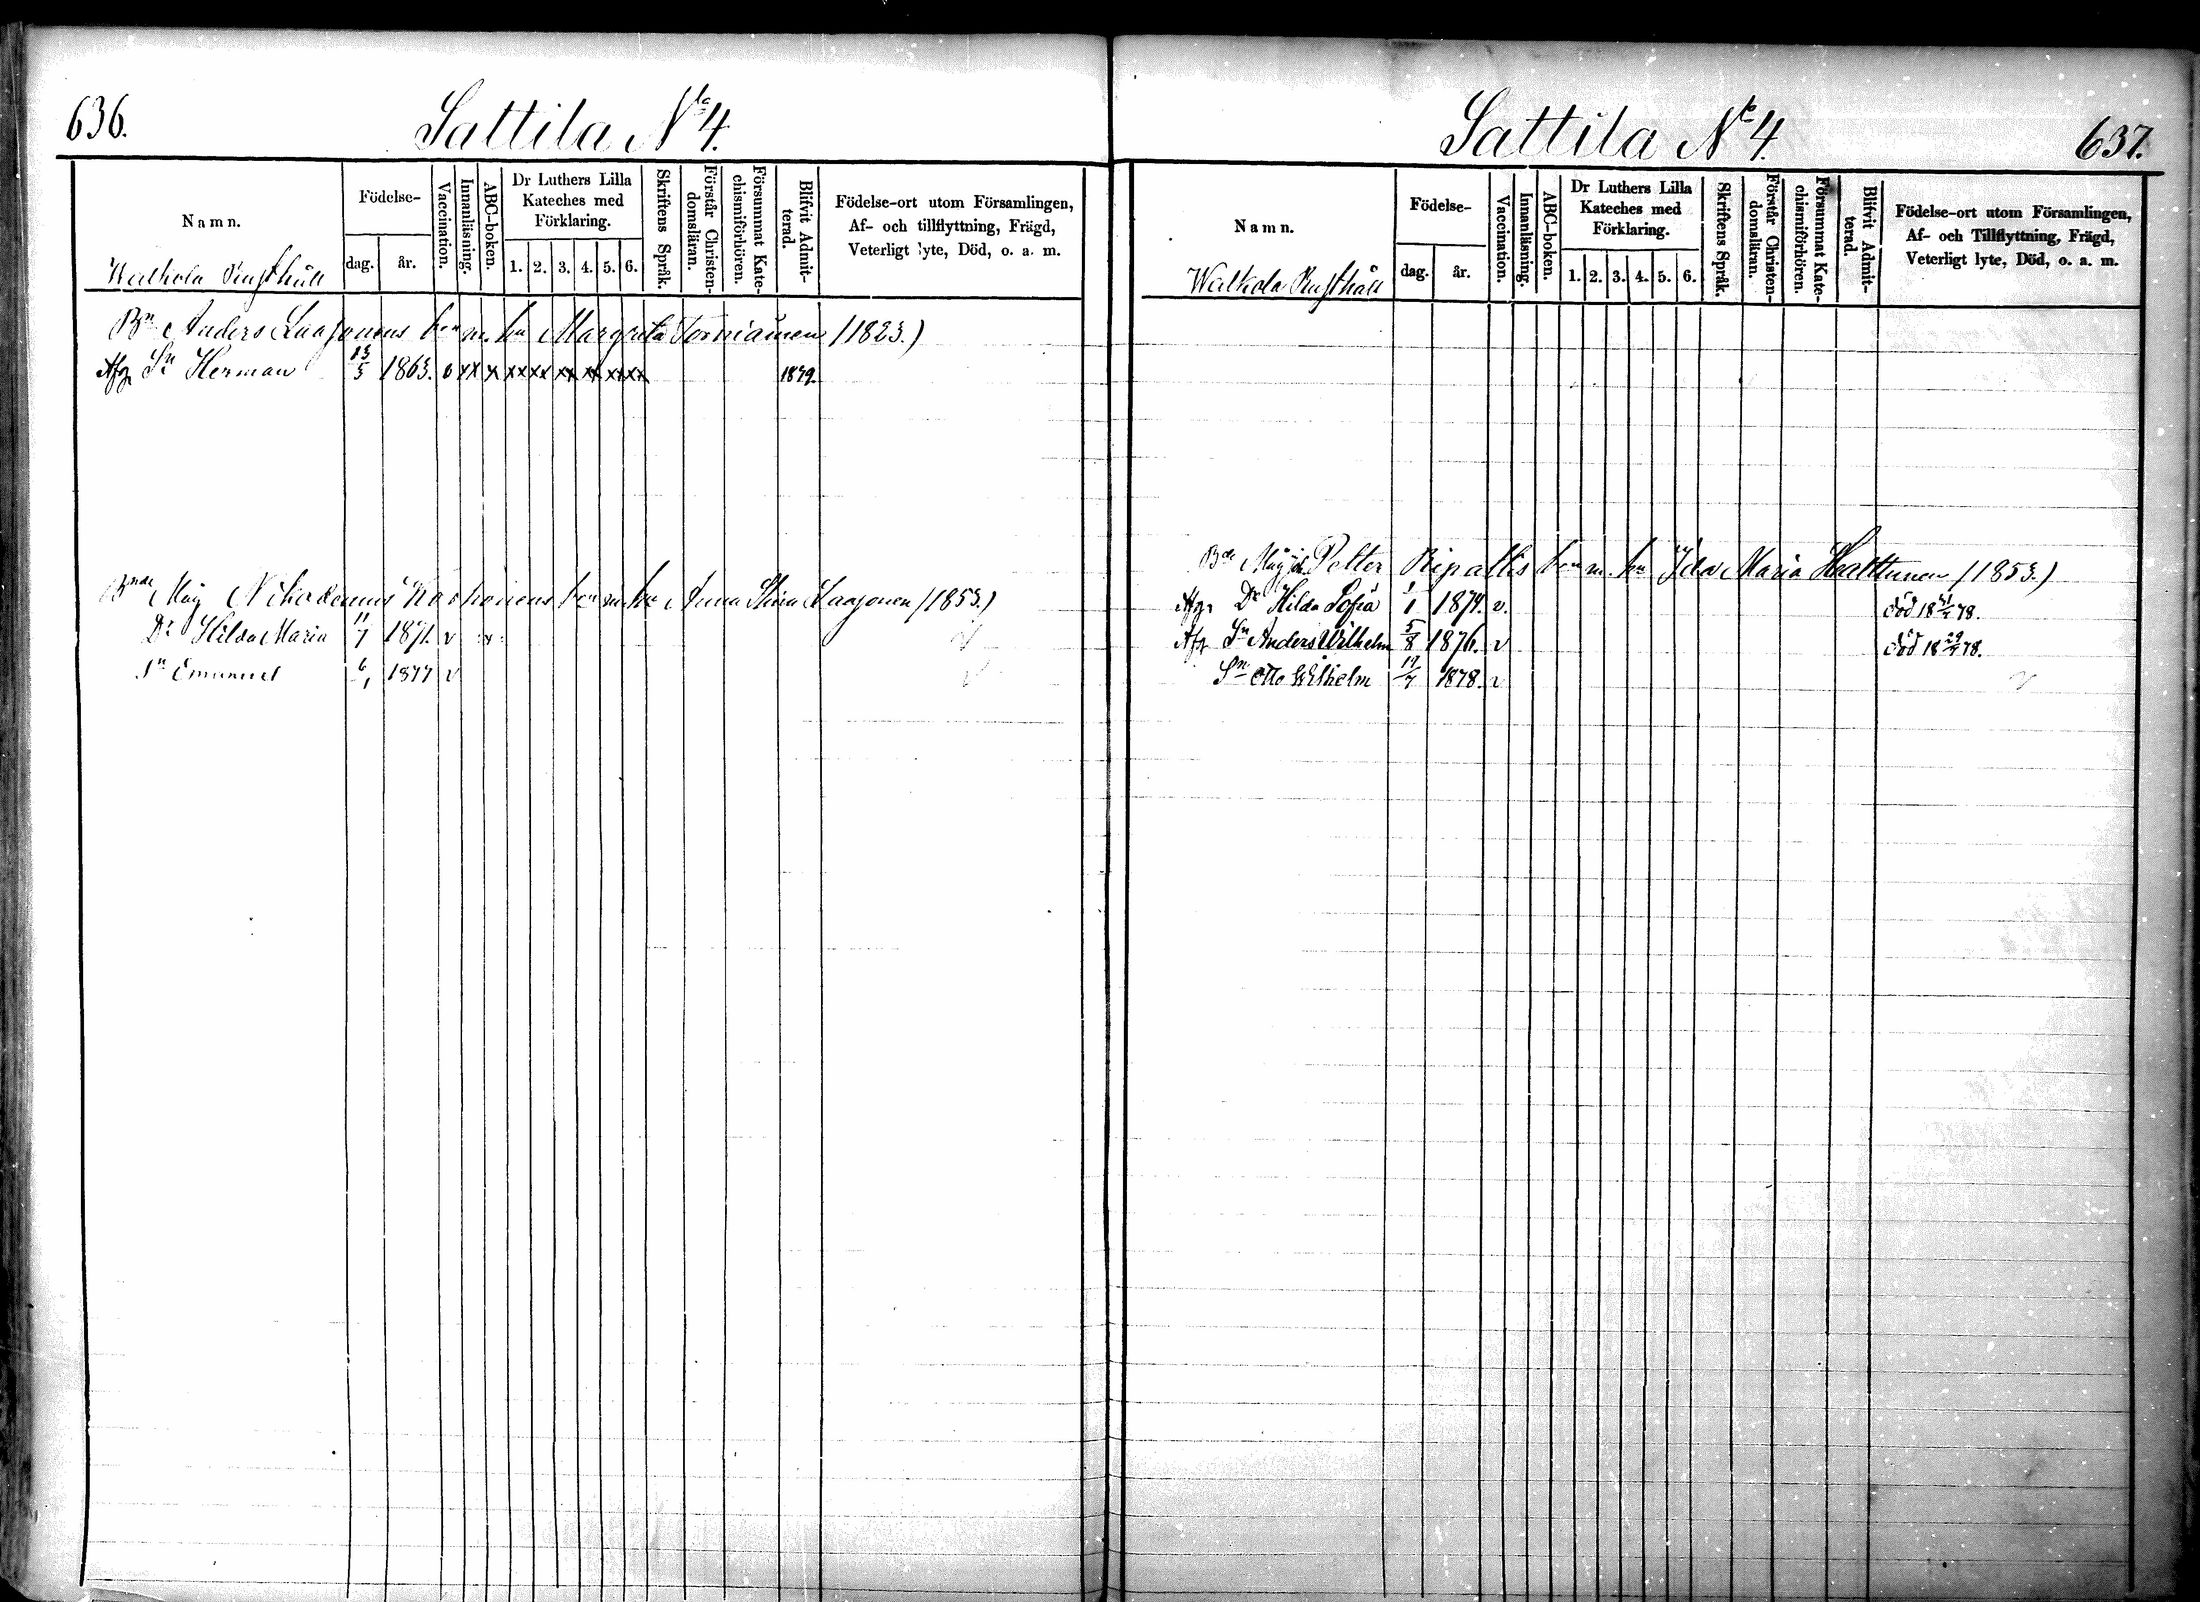 636.
Sattila No 4.
Namn.
Födelse-
dag.
år.
Vaccination.
Innanläsning.
ABC-boken.
Dr Luthers Lilla
Kateches med
Förklaring.
1. 2. 3. 4. 5. 6.
Skriftens Språk.
Förstår Christen-
domsläran.
Försummat Kate-
chismiförhören.
Blifvit Admit-
terad.
Födelse-ort utom Församlingen,
Af- och tillflyttning, Frägd,
Veterligt lyte, Död, o. a. m.
Walkola Rusthåll
Bn Anders Laajonens m. Margreta Torniainen (1823.)
Afg. Sn Herman 13/5 1863. 1879.
Måg Nikodemus Anna Stina Laajonen (1853.)
Dr Hilda Maria 11/7 1871. v
Sn Emanuel 6/1 1877 v
Sattila No 4.
637.
Namn.
Födelse-
dag.
år.
Vaccination.
Innanläsning.
ABC-boken.
Dr Luthers Lilla
Kateches med
Förklaring.
1. 2. 3. 4. 5. 6.
Skriftens Språk.
Förstår Christen-
domsläran.
Försummat Kate-
chismiförhören.
Blifvit Admit-
terad.
Födelse-ort utom Församlingen,
Af- och Tillflyttning, Frägd,
Veterligt lyte, Död, o. a. m.
Walkola Rusthåll
Måg Petter Ripattis m. Ida Maria Hattunen (1853.)
Afg. Dr Hilda Sofia 1/1 1874. v. död 18 31/7 78.
Afg. Sn Anders Wilhelm 5/8 1876. v död 18 78.
Sn Otto Wilhelm 17/7 1878. v